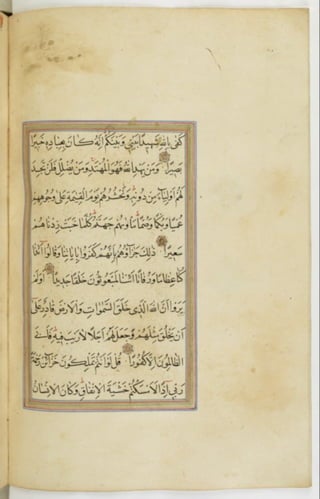 كَفٰى بِاللهِ شَهِيدًا بَيْنِي وَبَيْنَكُمْ اِنَّهُ كَانَ بِعِبَادِهِ خَبِيرًا
بَصِيرًا وَمَنْ يَهْدِ اللهُ فَهُوَ الْمُهْتَدِ وَمَنْ يُضْلِلْ فَلَنْ تَجِدَ
لَهُمْ اَوْلِيَاءَ مِنْ دُونِهِ وَنَحْشُرُهُمْ يَوْمَ الْقِيٰمَةِ عَلٰى وُجُوهِهِمْ
عُمْيًا وَبُكْمًا وَصُمًّا مَأْوٰيهُمْ جَهَنَّمُ كُلَّمَا خَبَتْ زِدْنَاهُمْ
سَعِيرًا ذٰلِكَ جَزَاؤُهُمْ بِاَنَّهُمْ كَفَرُوا بِاٰيَاتِنَا وَقَالُوا ءَاِذَا
كُنَّا عِظَامًا وَرُفَاتًا ءَاِنَّا لَمَبْعُوثُونَ خَلْقًا جَدِيدًا اَوَلَمْ
يَرَوْا اَنَّ اللهَ الَّذِي خَلَقَ السَّمٰوَاتِ وَالْاَرْضَ قَادِرٌ عَلٰى
اَنْ يَخْلُقَ مِثْلَهُمْ وَجَعَلَ لَهُمْ اَجَلًا لَا رَيْبَ فِيهِ فَاَبَى
الظَّالِمُونَ اِلَّا كُفُورًا قُلْ لَوْ اَنْتُمْ تَمْلِكُونَ خَزَائِنَ رَحْمَةِ
رَبِّي اِذًا لَاَمْسَكْتُمْ خَشْيَةَ الْاِنْفَاقِ وَكَانَ الْاِنْسَانُ